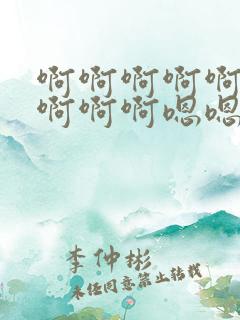 啊啊啊啊啊
啊啊啊嗯嗯
李仲彬
未经同意禁止转载